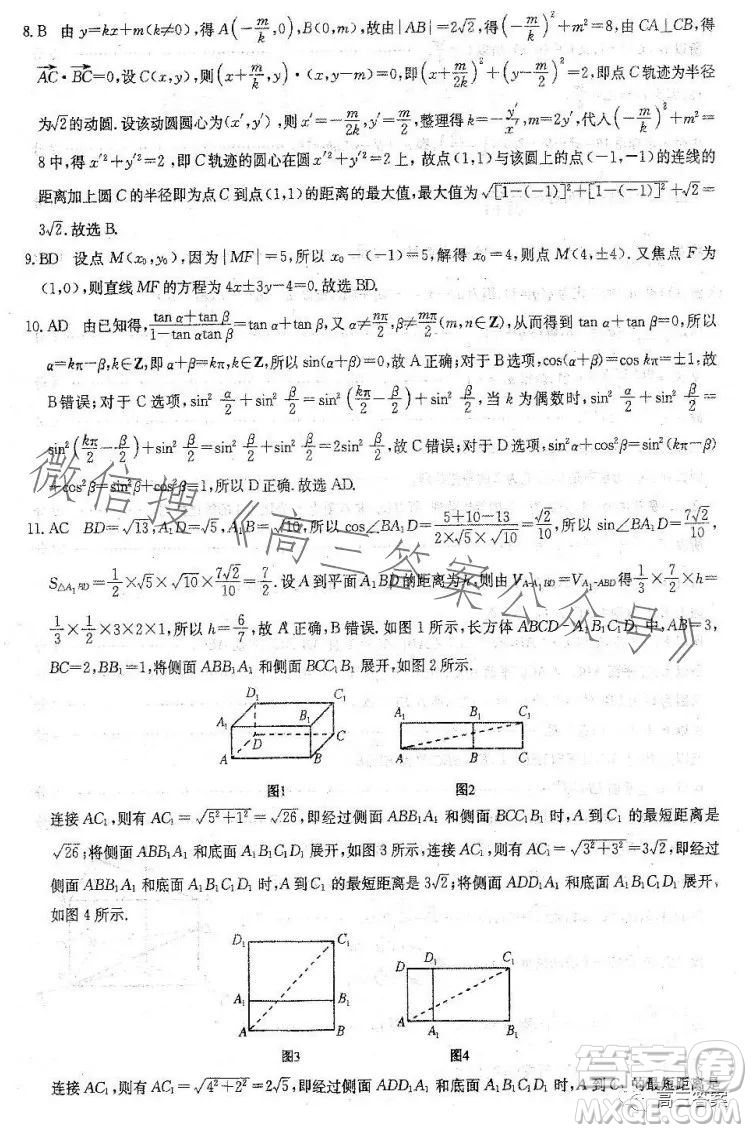 8. B 由 y=kx+m(k≠0),得 A(-m/k,0),B(0,m),故由|AB|=2√2,得(-m/k)²+m²=8,由 CA⊥CB,得
AC·BC=0,设 C(x,y),则(x+m/k,y)·(x,y-m)=0,即(x+m/2k)²+(y-m/2)²=2,即点 C 轨迹为半径
为√2的动圆.设该动圆圆心为(x′,y′),则 x′=-m/2k,y′=m/2,整理得 k=-y′/x′,m=2y′,代入(-m/k)²+m²=
8 中,得 x′²+y′²=2,即 C 轨迹的圆心在圆 x′²+y′²=2 上,故点(1,1)与该圆上的点(-1,-1)的连线的
距离加上圆 C 的半径即为点 C 到点(1,1)的距离的最大值,最大值为√[1-(-1)]²+[1-(-1)]²+√2=
3√2.故选 B.
9. BD 设点 M(x₀,y₀),因为|MF|=5,所以 x₀-(-1)=5,解得 x₀=4,则点 M(4,±4).又焦点 F 为
(1,0),则直线 MF 的方程为 4x±3y-4=0.故选 BD.
10. AD 由已知得,(tan α+tan β)/(1-tan αtan β)=tan α+tan β,又 α≠nπ/2,β≠mπ/2(m,n∈Z),从而得到 tan α+tan β=0,所以
α=kπ-β,k∈Z,即 α+β=kπ,k∈Z,所以 sin(α+β)=0,所以 A 正确;对于 B 选项,cos(α+β)=cos kπ=±1,故
B 错误;对于 C 选项,sin² α/2+sin² β/2=sin²(kπ/2-β/2)+sin² β/2,当 k 为偶数时,sin² α/2+sin² β/2=
sin²(kπ/2-β/2)+sin² β/2=sin² β/2+sin² β/2=2sin² β/2,故 C 错误;对于 D 选项,sin²α+cos²β=sin²(kπ-β)
+cos²β=sin²β+cos²β=1,所以 D 正确.故选 AD.
11. AC BD=√13,A₁D=√5,A₁B=√10,所以 cos∠BA₁D=(5+10-13)/(2×√5×√10)=√2/10,所以 sin∠BA₁D=7√2/10,
S△A₁BD=1/2×√5×√10×7√2/10=7/2.设 A 到平面 A₁BD 的距离为 h,则由 V_A-A₁BD=V_A₁-ABD得 1/3×7/2×h=
1/3×1/2×3×2×1,所以 h=6/7,故 A 正确,B 错误.如图 1 所示,长方体 ABCD-A₁B₁C₁D₁ 中,AB=3,
BC=2,BB₁=1,将侧面 ABB₁A₁ 和侧面 BCC₁B₁ 展开,如图 2 所示.
D₁ C₁ A₁ B₁ D C A B
A₁ B₁ C₁ A B C
图1 图2
连接 AC₁,则有 AC₁=√5²+1²=√26,即经过侧面 ABB₁A₁ 和侧面 BCC₁B₁ 时,A 到 C₁ 的最短距离是
√26;将侧面 ABB₁A₁ 和底面 A₁B₁C₁D₁ 展开,如图 3 所示,连接 AC₁,则有 AC₁=√3²+3²=3√2,即经过
侧面 ABB₁A₁ 和底面 A₁B₁C₁D₁ 时,A 到 C₁ 的最短距离是 3√2;将侧面 ADD₁A₁ 和底面 A₁B₁C₁D₁ 展开,
如图 4 所示.
D₁ C₁ A₁ B₁ A B
D D₁ C₁ A A₁ B₁
图3 图4
连接 AC₁,则有 AC₁=√4²+2²=2√5,即经过侧面 ADD₁A₁ 和底面 A₁B₁C₁D₁ 时,A 到 C₁ 的最短距离是
微信搜《高三答案公众号》
答案圈
高三答案
MXQE.COM